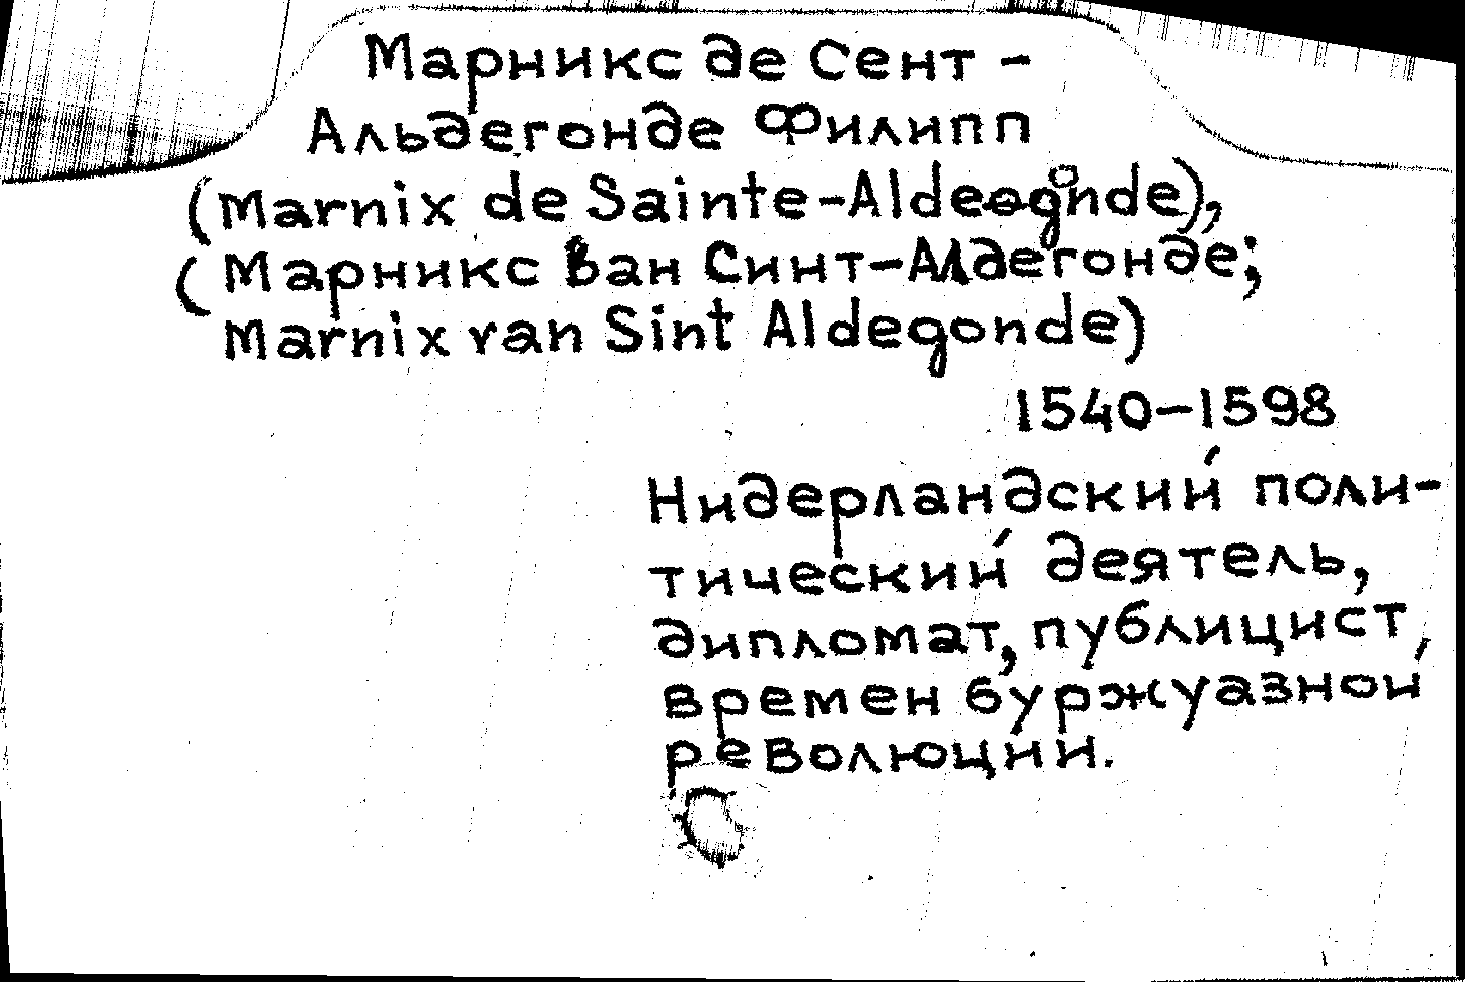 Марникс де Сент-
Альдегонде Филипп
(Marnix de Sainte-Aldegonde),
(Марникс ван Синт-Алдегонде;
Marnix van Sint Aldegonde)
1540-1598
Нидерландский поли-
тический деятель,
дипломат, публицист
времен буржуазной
революции.